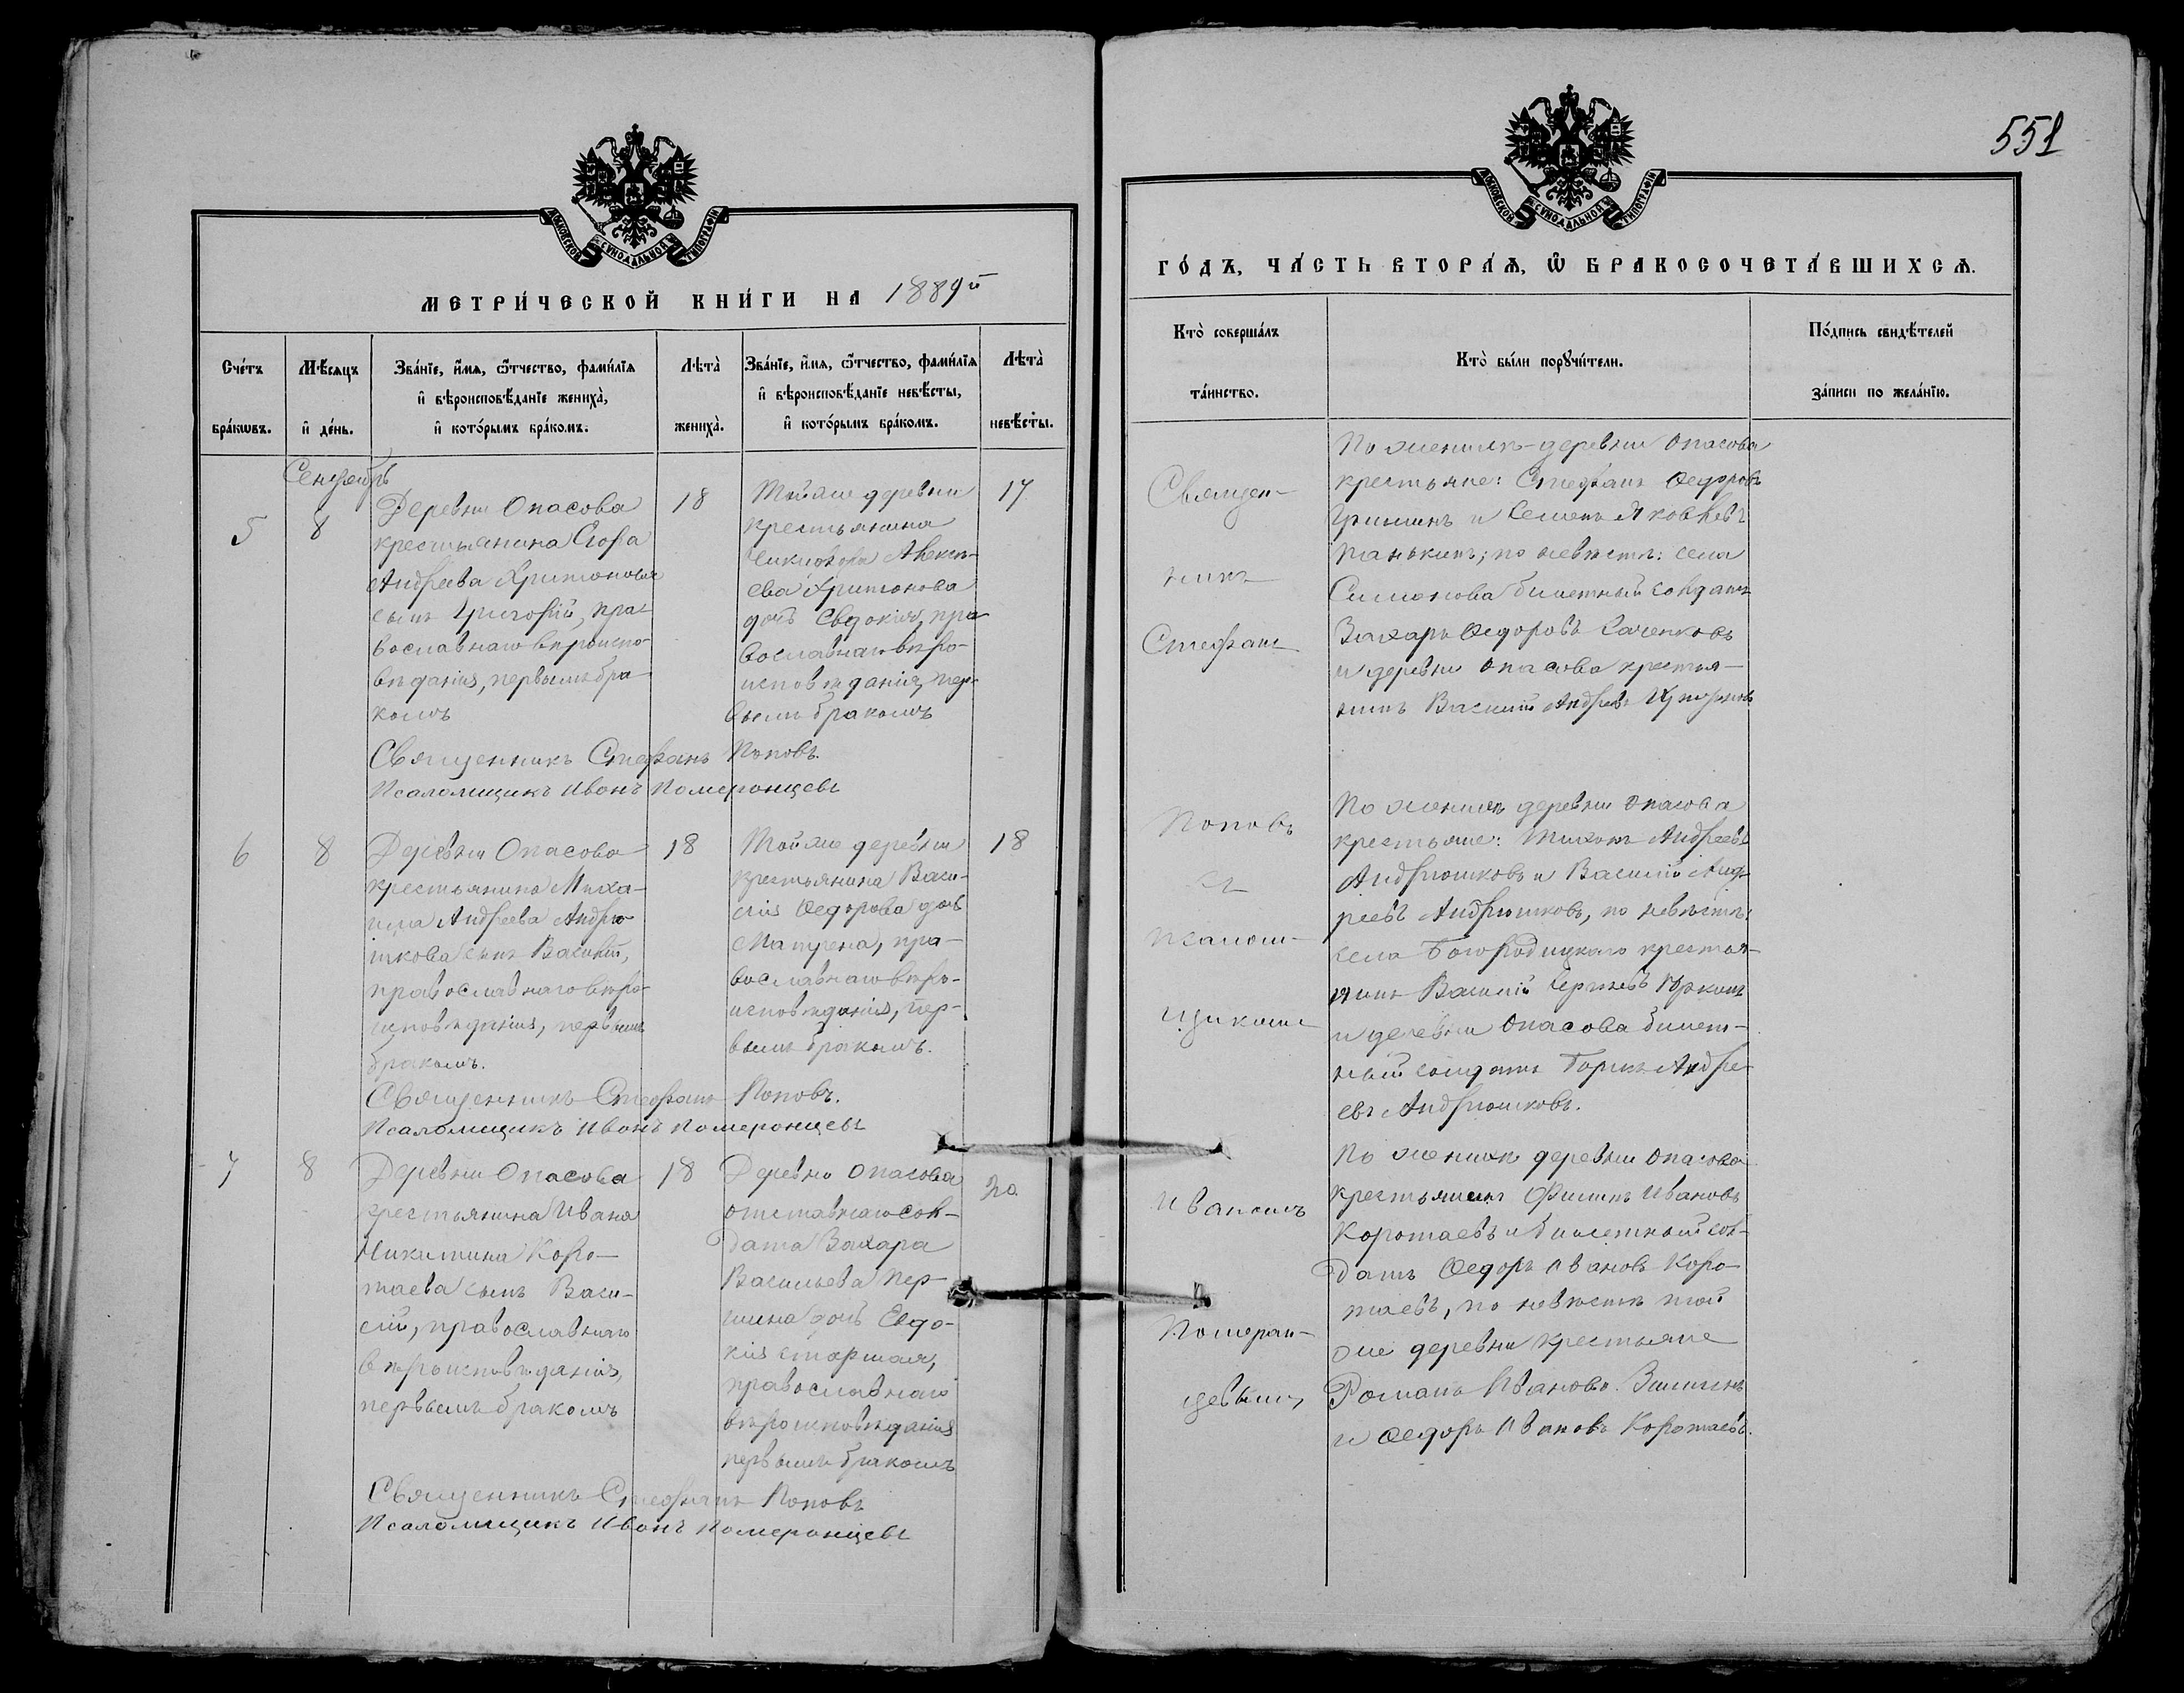 551
МОСКОВСКОЙ СѴНОДАЛЬНОЙ ТИПОГРАФІИ
МЕТРИ́ЧЕСКОЙ КНИ́ГИ НА 1889й
Сче́тъ
бра́кѡвъ.
Мѣ́сяцъ
и҆ де́нь.
Зва́нїе, и҆́мя, ѻ҆́тчество, фами́лїя
и҆ вѣроисповѣ́данїе жениха̀,
и҆ кото́рымъ бра́комъ.
Лѣта̀
жениха̀.
Зва́нїе, и҆́мя, ѻ҆́тчество, фами́лїя
и҆ вѣроисповѣ́данїе невѣ́сты,
и҆ кото́рымъ бра́комъ.
Лѣта̀
невѣ́сты.
Сентябрь
5
8
Деревни Опасова
крестьянина Егора
Андреева Хритонова
сынъ Григорій, пра-
вославнаго вѣроиспо-
вѣданія, первымъ бра-
комъ
18
Той же деревни
крестьянина
Алексѣ-
ева Хритонова
дочь Евдокія, пра-
вославнаго вѣро-
исповѣданія, пер-
вымъ бракомъ
17
Священникъ Стефанъ Поповъ.
Псаломщикъ Иванъ Померанцевъ
6
8
Деревни Опасова
крестьянина Миха-
ила Андреева Андрю-
шкова сынъ Василій,
православнаго вѣро-
исповѣданія, первымъ
бракомъ.
18
Той же деревни
крестьянина Васи-
лія Ѳедорова дочь
Матрена, пра-
вославнаго вѣро-
исповѣданія, пер-
вымъ бракомъ.
18
Священникъ Стефанъ Поповъ.
Псаломщикъ Иванъ Померанцевъ
7
8
Деревни Опасова
крестьянина Ивана
Никитина Коро-
таева сынъ Васи-
лій, православнаго
вѣроисповѣданія,
первымъ бракомъ
18
Деревни Опасова
отставнаго сол-
дата Захара
Васильева Пер-
шина дочь Евдо-
кія старшая,
православнаго
вѣроисповѣданія
первымъ бракомъ
20
Священникъ Стефанъ Поповъ
Псаломщикъ Иванъ Померанцевъ
МОСКОВСКОЙ СѴНОДАЛЬНОЙ ТИПОГРАФІИ
ГО́ДЪ, ЧА́СТЬ ВТОРА́Я, Ѽ БРАКОСОЧЕТА́ВШИХСЯ.
Кто̀ соверша́лъ
та́инство.
Кто̀ бы́ли порꙋчи́тели.
По́дпись свидѣ́телей
за́писи по жела́нїю.
Священ-
никъ
Стефанъ
Поповъ
съ
псалом-
щикомъ
Иваномъ
Померан-
цевымъ,
По женихѣ-деревни Опасова
крестьяне: Стефанъ Ѳедоровъ
Гришинъ и Семенъ Яковлевъ
Панькинъ; по невѣстѣ: села
Симонова билетный солдатъ
Захаръ Ѳедоровъ Саченковъ
и деревни Опасова крестья-
нинъ Василій Андреевъ Хритоновъ
По женихѣ деревни Опасова
крестьяне: Тихонъ Андреевъ
Андрюшковъ и Василій Анд-
реевъ Андрюшковъ, по невѣстѣ:
села Богородицкаго крестья-
нинъ Василій Сергѣевъ
и деревни Опасова билет-
ный солдатъ Борисъ Андре-
евъ Андрюшковъ.
По женихѣ деревни Опасова
крестьянинъ Филипъ Ивановъ
Коротаевъ и билетный сол-
датъ Ѳедоръ Ивановъ Коро-
таевъ, по невѣстѣ той
же деревни крестьяне
Романъ Ивановъ Зиминъ
и Ѳедоръ Ивановъ Коротаевъ.